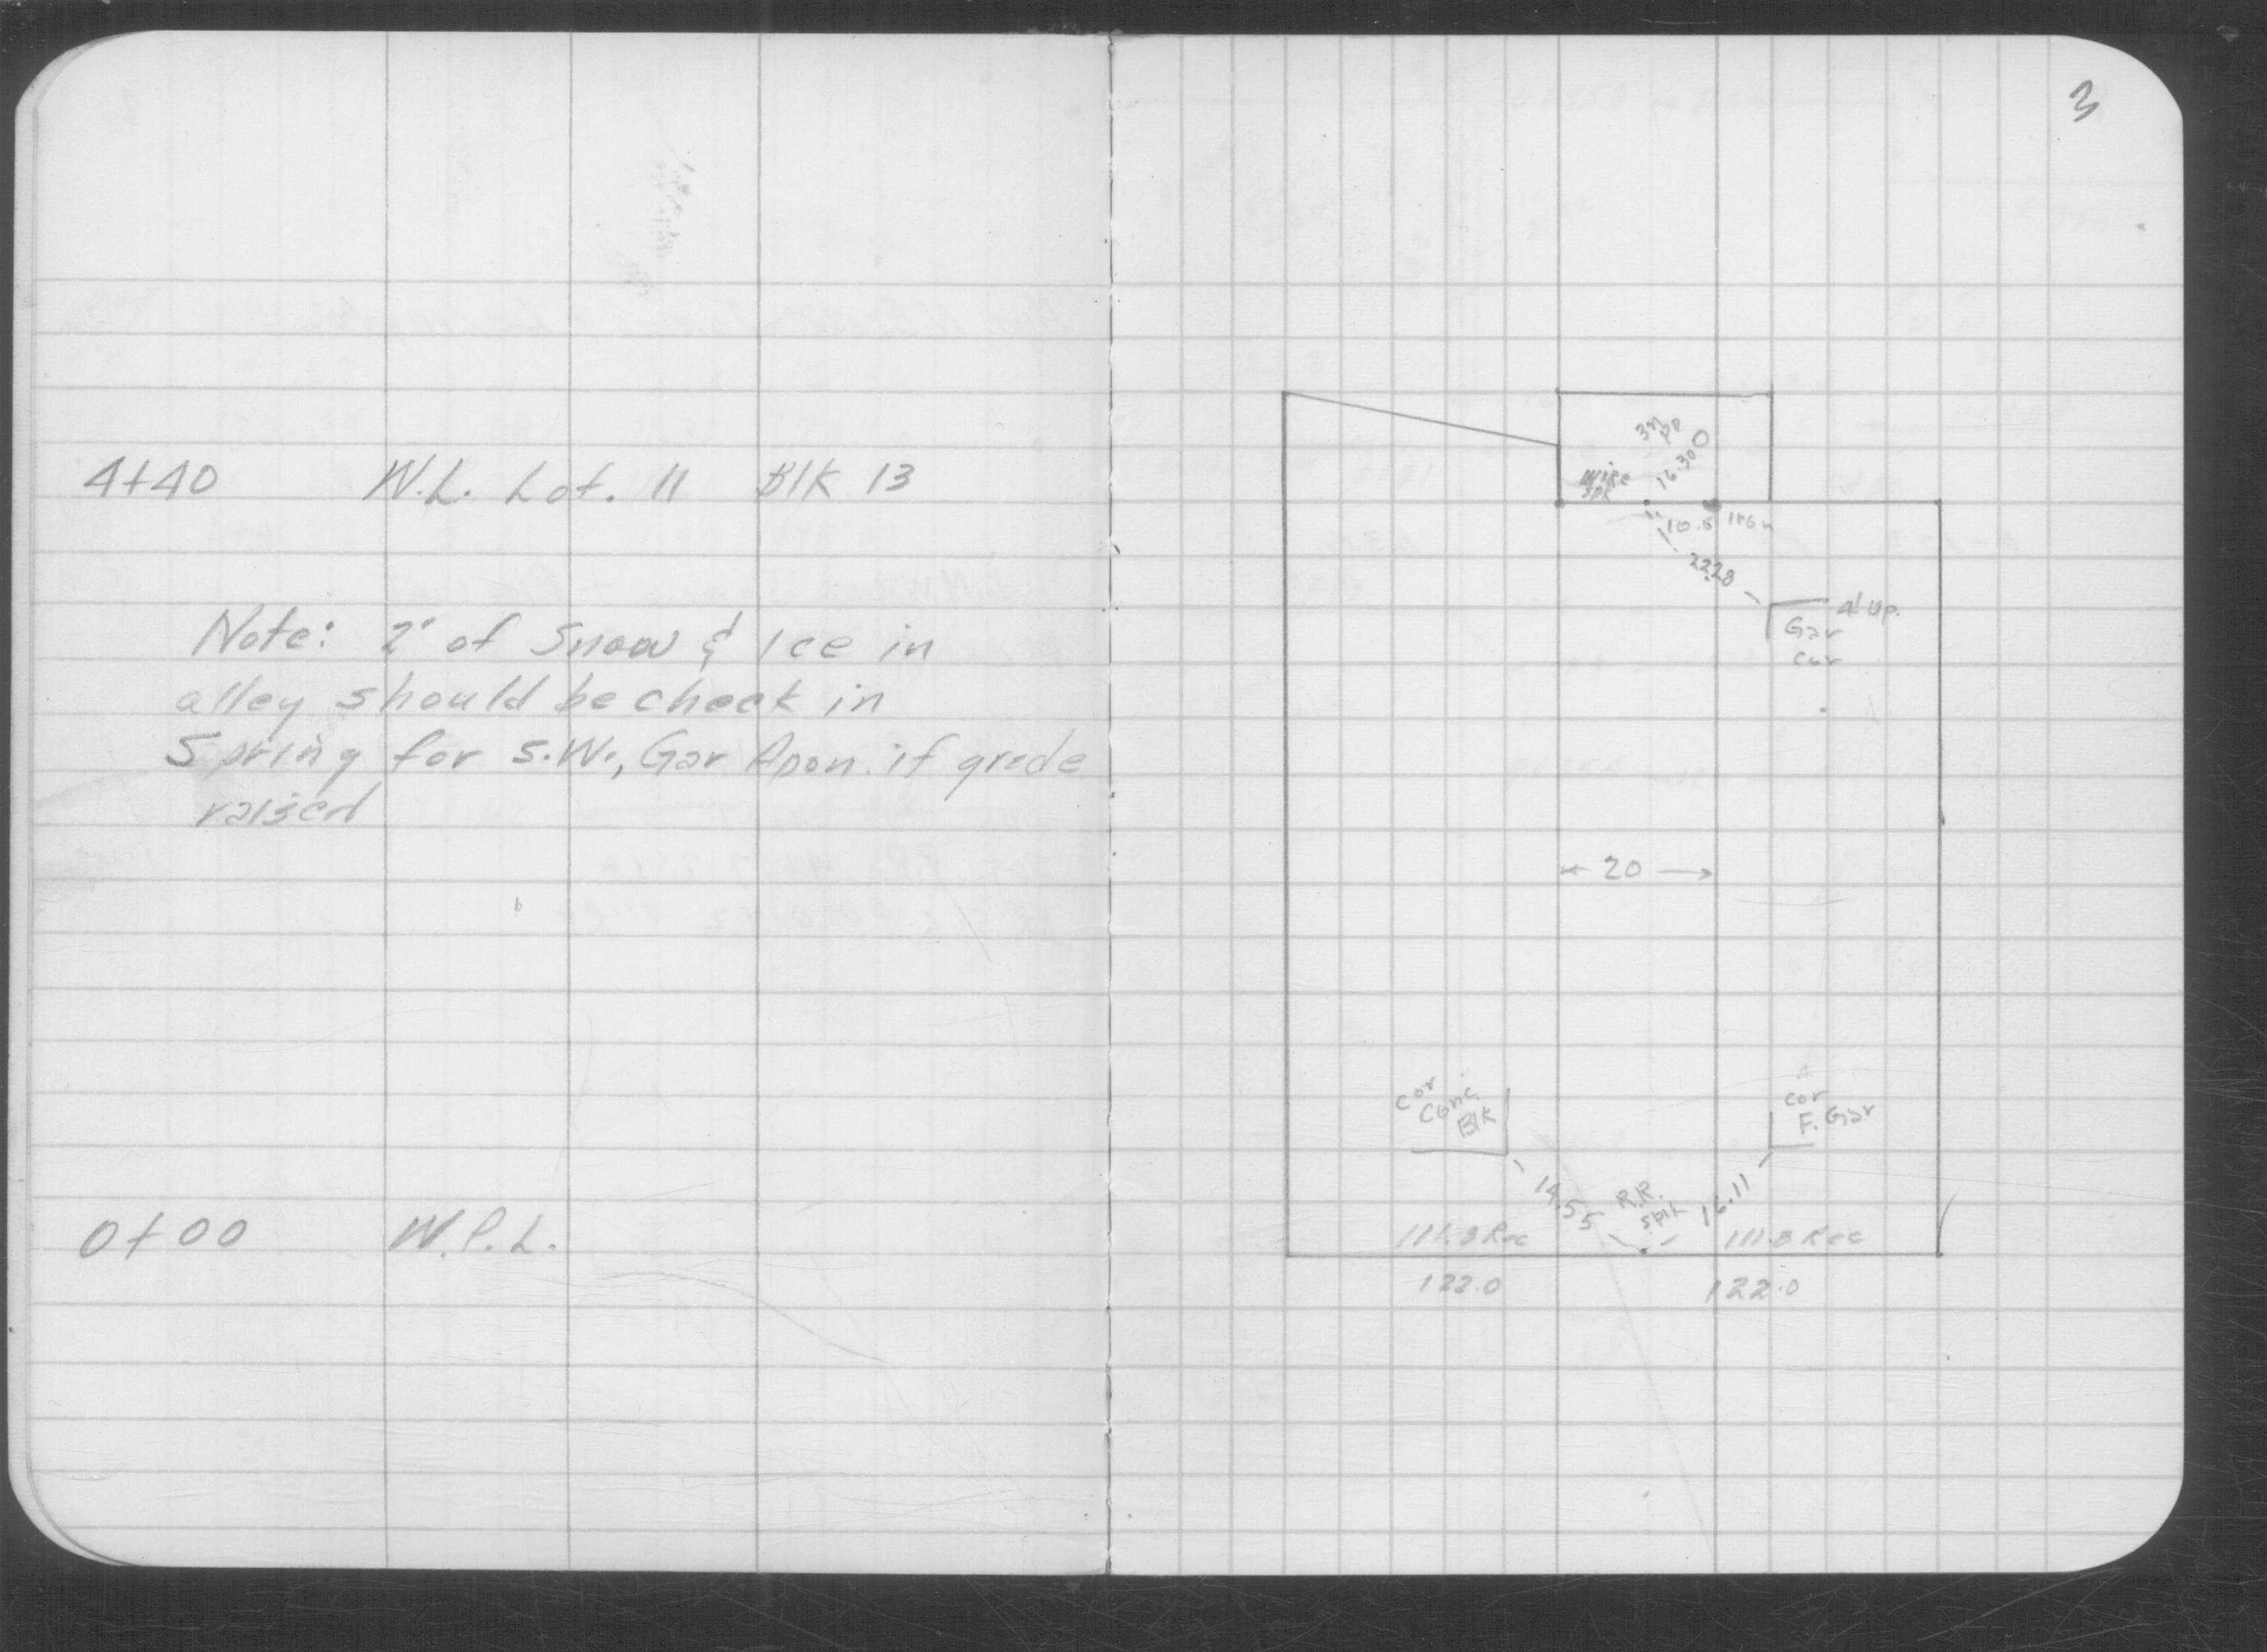 3
4+40 W.L. Lot. 11 Blk 13
Note: 2" of Snow & Ice in
alley should be check in
Spring for S.W., Gar Apon. if grade
raised
0+00 W.P.L.
PP
16.30
Spk
10.5 Iron
22.28
4' up.
Gar
cor
← 20 →
cor
Conc.
Blk
cor
F. Gar
14.55
R.R.
Spik
16.11
111.8 Rec
111.8 Rec
122.0
122.0